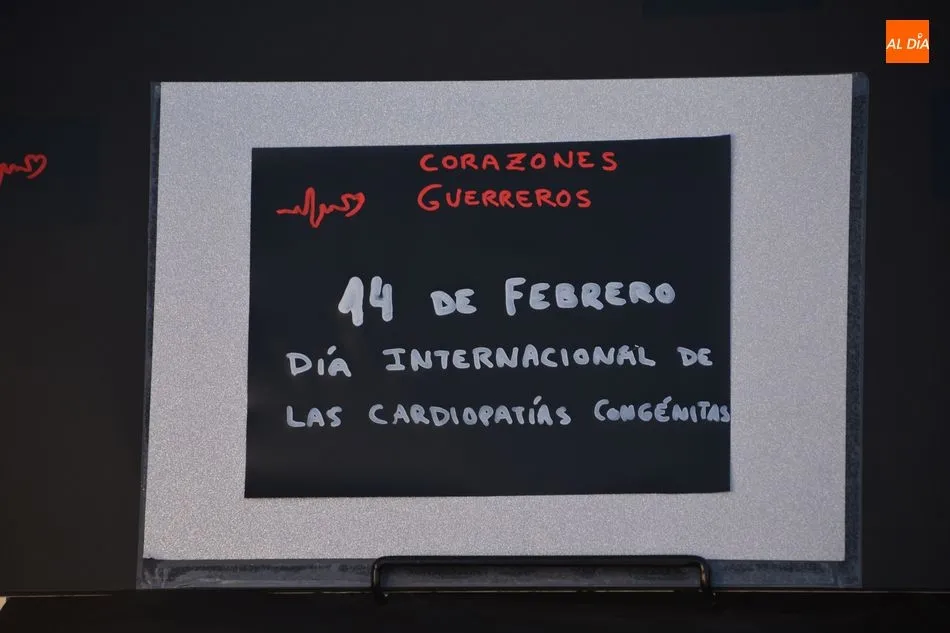 AL DÍA
CORAZONES
GUERREROS
14 DE FEBRERO
DÍA INTERNACIONAL DE
LAS CARDIOPATÍAS CONGÉNITAS